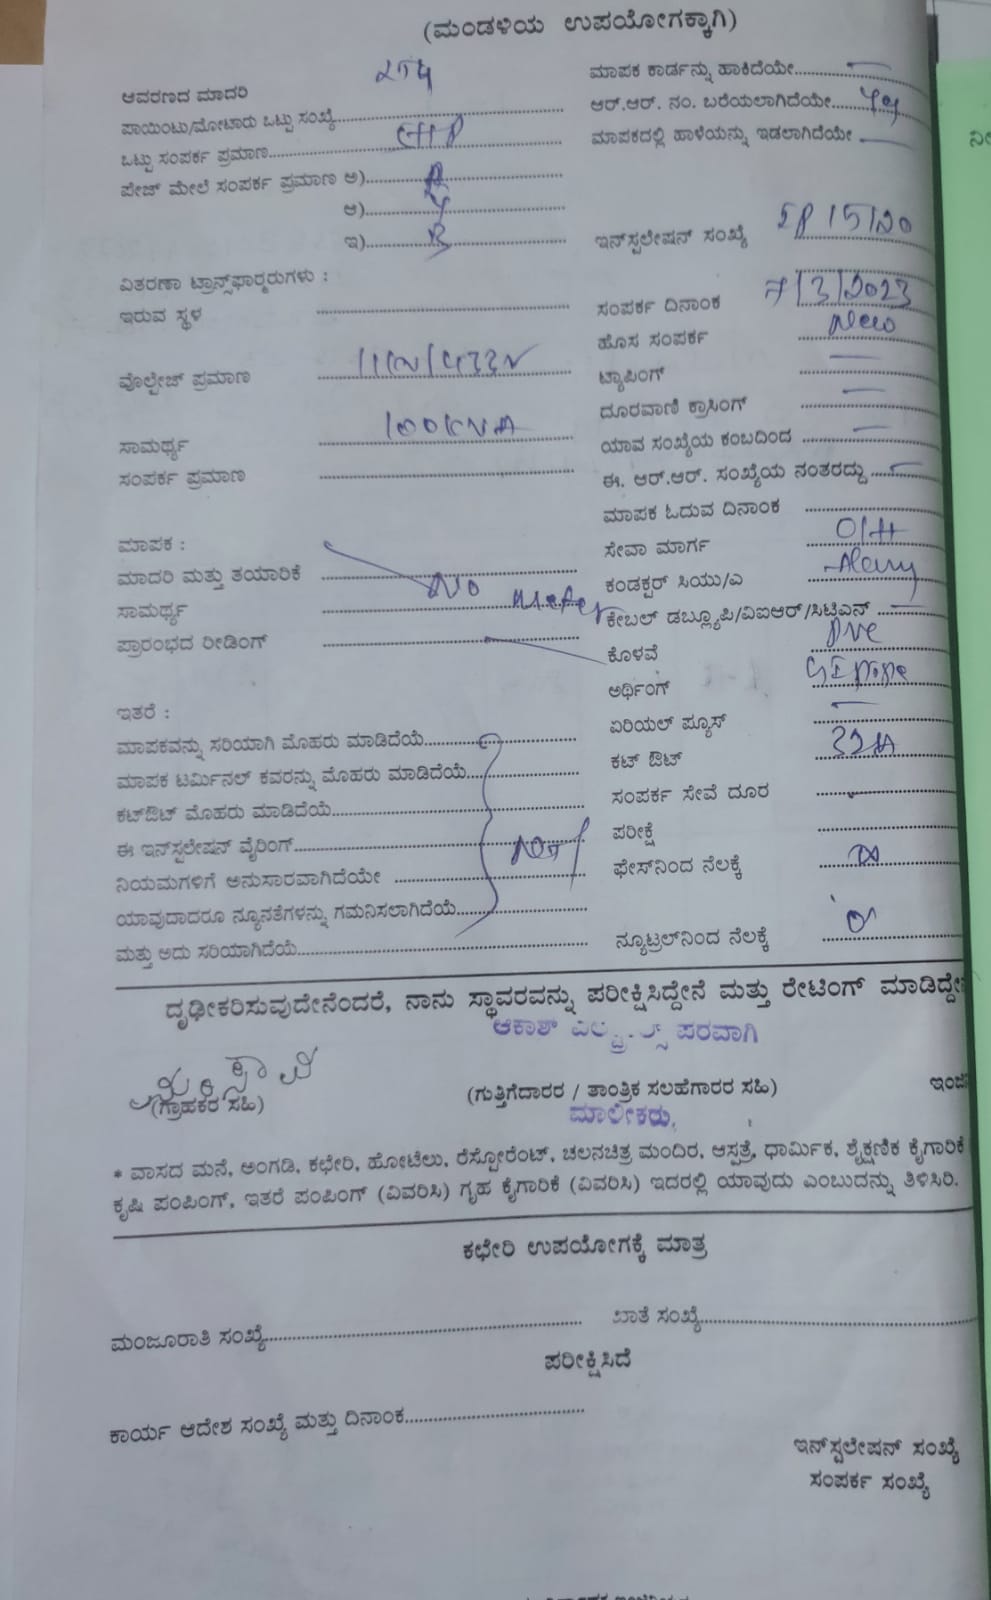 (ಮಂಡಳಿಯ ಉಪಯೋಗಕ್ಕಾಗಿ)
ಆವರಣದ ಮಾದರಿ
ಪಾಯಿಂಟು/ಮೋಟಾರು ಒಟ್ಟು ಸಂಖ್ಯೆ
ಒಟ್ಟು ಸಂಪರ್ಕ ಪ್ರಮಾಣ
ಪೇಜ್ ಮೇಲೆ ಸಂಪರ್ಕ ಪ್ರಮಾಣ ಅ) R
ಆ) Y
ಇ) B
ವಿತರಣಾ ಟ್ರಾನ್ಸ್‌ಫಾರ್‍ಮರುಗಳು :
ಇರುವ ಸ್ಥಳ
ವೊಲ್ಟೇಜ್ ಪ್ರಮಾಣ
ಸಾಮರ್ಥ್ಯ 100KVA
ಸಂಪರ್ಕ ಪ್ರಮಾಣ
ಮಾಪಕ :
ಮಾದರಿ ಮತ್ತು ತಯಾರಿಕೆ
ಸಾಮರ್ಥ್ಯ No meter
ಪ್ರಾರಂಭದ ರೀಡಿಂಗ್
ಇತರೆ :
ಮಾಪಕವನ್ನು ಸರಿಯಾಗಿ ಮೊಹರು ಮಾಡಿದೆಯೆ
ಮಾಪಕ ಟರ್ಮಿನಲ್ ಕವರನ್ನು ಮೊಹರು ಮಾಡಿದೆಯೆ
ಕಟ್‌ಔಟ್ ಮೊಹರು ಮಾಡಿದೆಯೆ
ಈ ಇನ್‌ಸ್ಪಲೇಷನ್ ವೈರಿಂಗ್
ನಿಯಮಗಳಿಗೆ ಅನುಸಾರವಾಗಿದೆಯೇ
ಯಾವುದಾದರೂ ನ್ಯೂನತೆಗಳನ್ನು ಗಮನಿಸಲಾಗಿದೆಯೆ
ಮತ್ತು ಅದು ಸರಿಯಾಗಿದೆಯೆ
ಮಾಪಕ ಕಾರ್ಡನ್ನು ಹಾಕಿದೆಯೇ
ಆರ್.ಆರ್. ನಂ. ಬರೆಯಲಾಗಿದೆಯೇ
ಮಾಪಕದಲ್ಲಿ ಹಾಳೆಯನ್ನು ಇಡಲಾಗಿದೆಯೇ
ಇನ್‌ಸ್ಪಲೇಷನ್ ಸಂಖ್ಯೆ
ಸಂಪರ್ಕ ದಿನಾಂಕ 7/3/2023
ಹೊಸ ಸಂಪರ್ಕ New
ಟ್ಯಾಪಿಂಗ್
ದೂರವಾಣಿ ಕ್ರಾಸಿಂಗ್
ಯಾವ ಸಂಖ್ಯೆಯ ಕಂಬದಿಂದ
ಈ. ಆರ್.ಆರ್. ಸಂಖ್ಯೆಯ ನಂತರದ್ದು
ಮಾಪಕ ಓದುವ ದಿನಾಂಕ
ಸೇವಾ ಮಾರ್ಗ O/H
ಕಂಡಕ್ಟರ್ ಸಿಯು/ಎ
ಕೇಬಲ್ ಡಬ್ಲ್ಯೂಪಿ/ವಿಐಆರ್/ಸಿಟಿಎಸ್
ಕೊಳವೆ
ಅರ್ಥಿಂಗ್ GI pipe
ಏರಿಯಲ್ ಪ್ಯೂಸ್
ಕಟ್ ಔಟ್ 32A
ಸಂಪರ್ಕ ಸೇವೆ ದೂರ
ಪರೀಕ್ಷೆ
ಫೇಸ್‌ನಿಂದ ನೆಲಕ್ಕೆ
ನ್ಯೂಟ್ರಲ್‌ನಿಂದ ನೆಲಕ್ಕೆ
ದೃಢೀಕರಿಸುವುದೇನೆಂದರೆ, ನಾನು ಸ್ಥಾವರವನ್ನು ಪರೀಕ್ಷಿಸಿದ್ದೇನೆ ಮತ್ತು ರೇಟಿಂಗ್ ಮಾಡಿದ್ದೇ
ಆಕಾಶ್ ಪರವಾಗಿ
(ಗ್ರಾಹಕರ ಸಹಿ) (ಗುತ್ತಿಗೆದಾರರ / ತಾಂತ್ರಿಕ ಸಲಹೆಗಾರರ ಸಹಿ)
ಮಾಲೀಕರು,
* ವಾಸದ ಮನೆ, ಅಂಗಡಿ, ಕಛೇರಿ, ಹೋಟೆಲು, ರೆಸ್ಟೋರೆಂಟ್, ಚಲನಚಿತ್ರ ಮಂದಿರ, ಆಸ್ಪತ್ರೆ, ಧಾರ್ಮಿಕ, ಶೈಕ್ಷಣಿಕ ಕೈಗಾರಿಕೆ
ಕೃಷಿ ಪಂಪಿಂಗ್, ಇತರೆ ಪಂಪಿಂಗ್ (ವಿವರಿಸಿ) ಗೃಹ ಕೈಗಾರಿಕೆ (ವಿವರಿಸಿ) ಇದರಲ್ಲಿ ಯಾವುದು ಎಂಬುದನ್ನು ತಿಳಿಸಿರಿ.
ಕಛೇರಿ ಉಪಯೋಗಕ್ಕೆ ಮಾತ್ರ
ಮಂಜೂರಾತಿ ಸಂಖ್ಯೆ ಖಾತೆ ಸಂಖ್ಯೆ
ಪರೀಕ್ಷಿಸಿದೆ
ಕಾರ್ಯ ಆದೇಶ ಸಂಖ್ಯೆ ಮತ್ತು ದಿನಾಂಕ
ಇನ್‌ಸ್ಪಲೇಷನ್ ಸಂಖ್ಯೆ
ಸಂಪರ್ಕ ಸಂಖ್ಯೆ